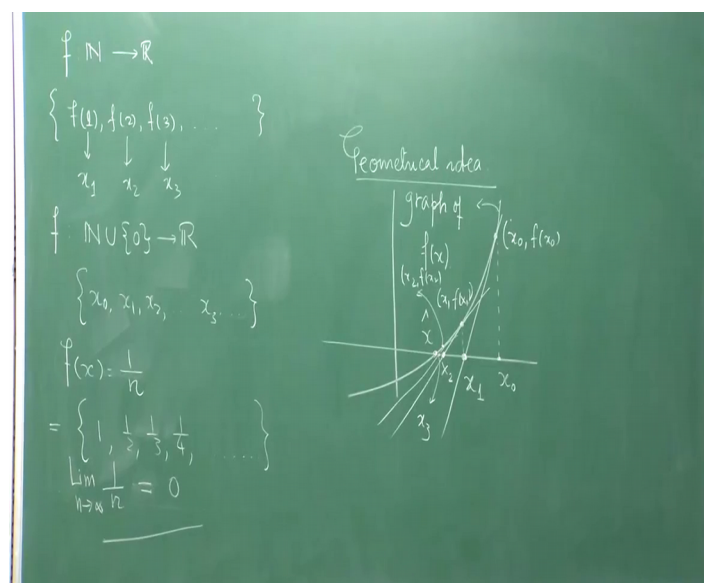 f N → R
{ f(1), f(2), f(3), .... }
↓ ↓ ↓
x₁ x₂ x₃
f : N ∪ {0} → R
{ x₀, x₁, x₂, .. x₃ ... }
f(x) = 1/n
= { 1, 1/2, 1/3, 1/4, ..... }
Lim n→∞ 1/n = 0
Geometrical idea
graph of
f(x)
(x₀, f(x₀)
(x₂, f(x₂)
(x₁, f(x₁)
x̂
x₂
x₁
x₀
x₃